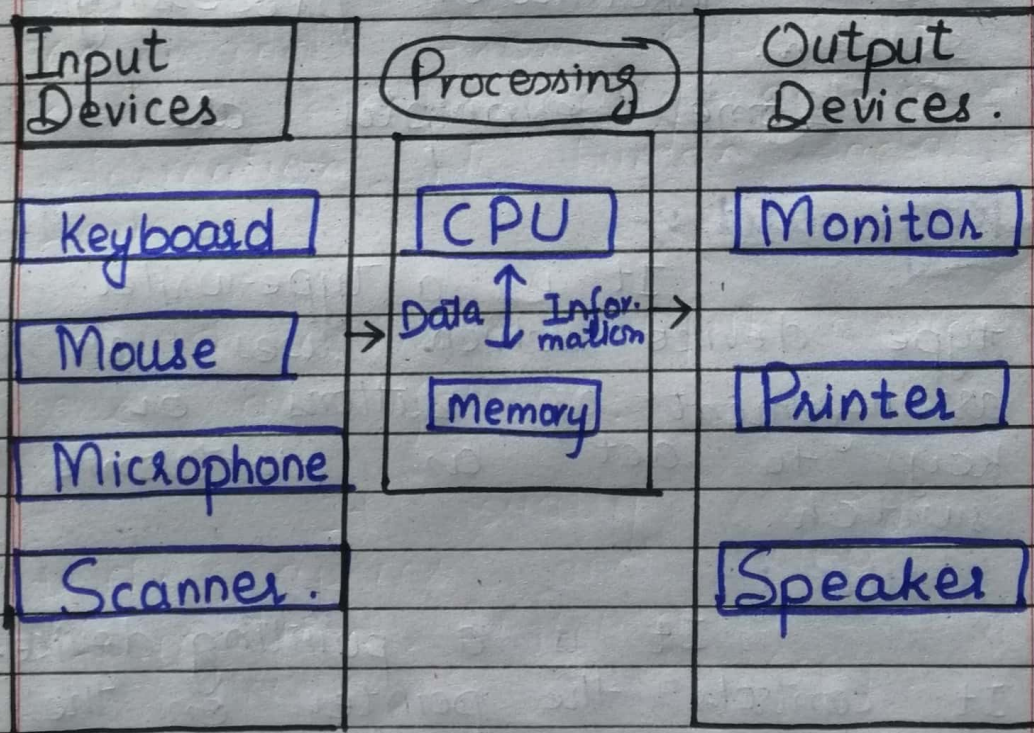 Input
Devices
Keyboard
Mouse
Microphone
Scanner.
Processing
CPU
Data
Infor-
mation
Memory
Output
Devices.
Monitor
Printer
Speaker